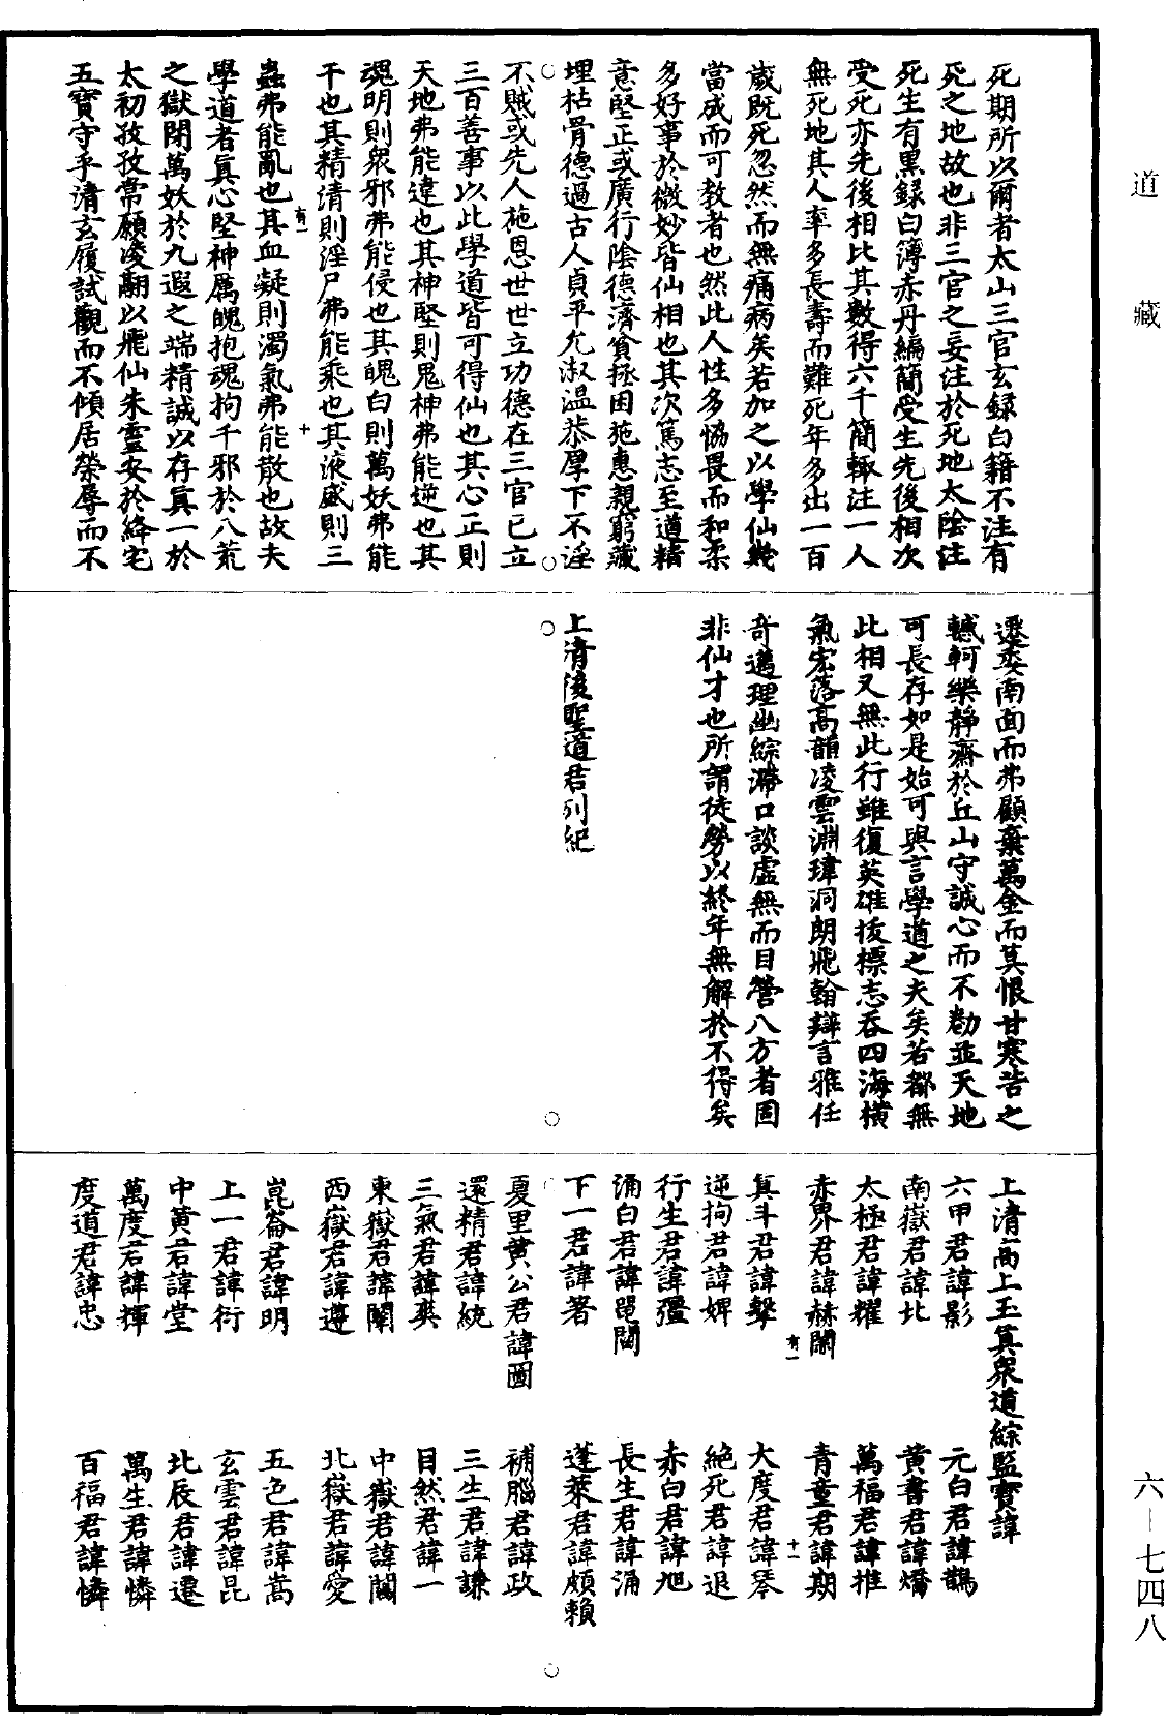 道藏
死期所以爾者太山三官玄錄白籍不注有
死之地故也非三官之妄注於死地太陰注
死生有黑錄白簿赤丹編簡受生先後相次
受死亦先後相比其數得六千簡輒注一人
無死地其人率多長壽而難死年多出一百
歲既死忽然而無痛病矣若加之以學仙幾
當成而可教者也然此人性多恊畏而和柔
多好事於微妙皆仙相也其次篤志至道精
意堅正或廣行陰德濟貧拯困施惠親窮藏
埋枯骨德過古人貞平允淑溫恭厚下不淫
不賊或先人施恩世世立功德在三官已立
三百善事以此學道皆可得仙也其心正則
天地弗能違也其神堅則鬼神弗能逆也其
魂明則衆邪弗能侵也其魄白則萬妖弗能
干也其精清則淫尸弗能乘也其液盛則三
有一 十
蟲弗能亂也其血凝則濁氣弗能散也故夫
學道者真心堅神厲魄抱魂拘千邪於八荒
之獄閉萬妖於九遐之端精誠以存真一於
太初孜孜常願凌翮以飛仙朱靈安於絳宅
五寶守乎清玄履試觀而不傾居榮辱而不
還委南面而弗顧棄萬金而莫恨甘寒苦之
轗軻樂靜齋於丘山守誠心而不勌並天地
可長存如是始可與言學道之夫矣若都無
此相又無此行雖復英雄拔標志吞四海橫
氣宏落高韻凌雲淵瑋洞朗飛翰辯言雅任
奇邁理幽綜滯口談虛無而目營八方者固
非仙才也所謂徒勞以終年無解於不得矣
上清後聖道君列紀
上清高上玉真衆道綜監寶諱
六甲君諱影 元白君諱鵲
南嶽君諱北 黃書君諱燔
太極君諱耀 萬福君諱推
赤界君諱赫 青童君諱期
有一 十一
真斗君諱擊 大度君諱琴
逆拘君諱婢 絕死君諱退
行生君諱彊 赤白君諱旭
誦白君諱 長生君諱涌
下一君諱著 蓬萊君諱頗賴
夏里黃公君諱圖 補腦君諱政
還精君諱統 三生君諱謙
三氣君諱奕 目然君諱一
東嶽君諱闡 中嶽君諱闓
西嶽君諱遵 北嶽君諱愛
崑崙君諱明 五色君諱嵩
上一君諱衍 玄雲君諱昆
中黃君諱堂 北辰君諱遷
萬度君諱輝 萬生君諱憐
度道君諱忠 百福君諱憐
六—七四八